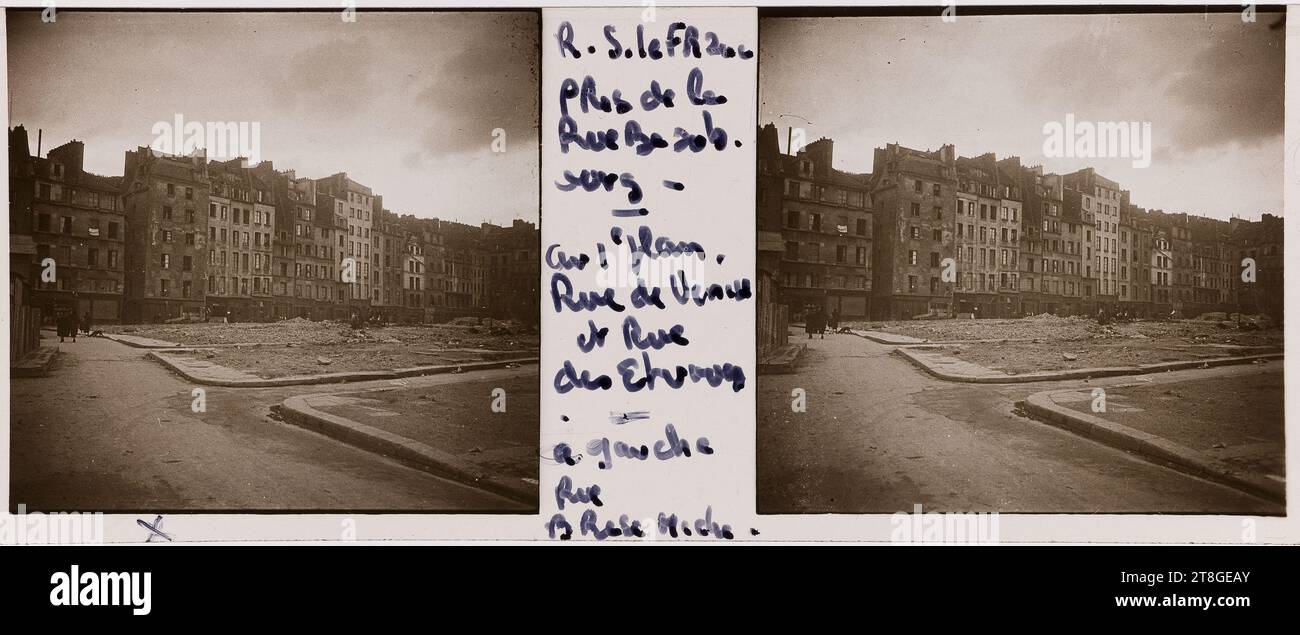 R. S. le Franc
près de la
Rue Beaub.
ourg -
au 1er plan.
Rue de Venise
et Rue
des Etuves
.
a gauche
Rue
B Rise Miche -
a
alamy
alamy
Image ID: 2T8GEAY
www.alamy.com